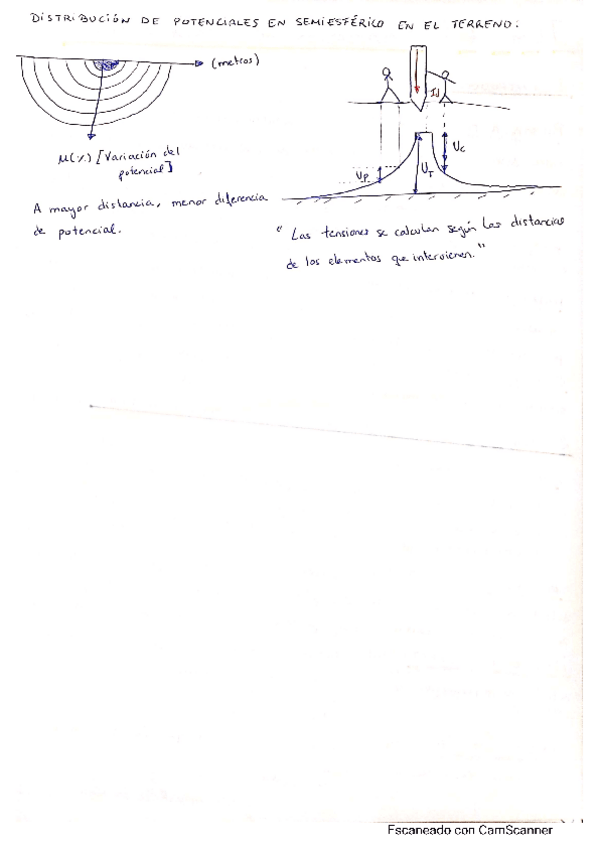 DISTRIBUCIÓN DE POTENCIALES EN SEMIESFÉRICO EN EL TERRENO:
(metros)
U(%) [Variación del
potencial]
A mayor distancia, menor diferencia
de potencial.
Id
UP
UT
UC
" Las tensiones se calculan según las distancias
de los elementos que intervienen."
Escaneado con CamScanner